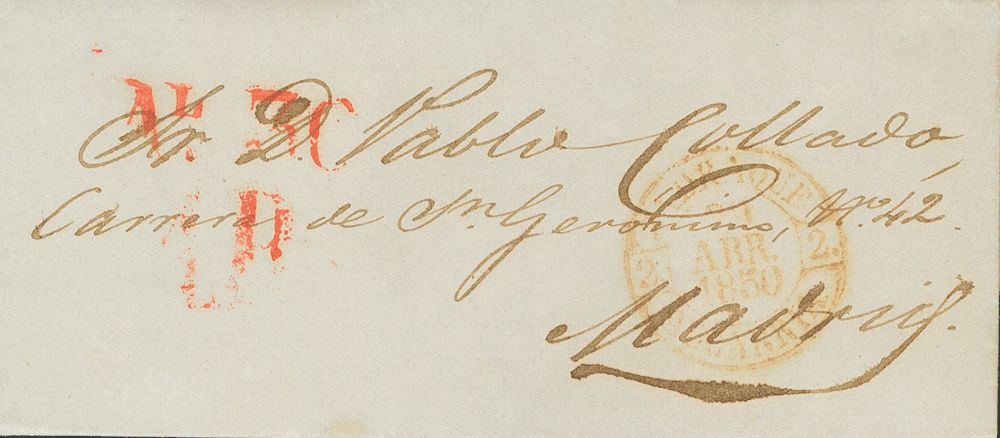 Sr. D. Pablo Collado,
Carrera de Sn. Gerónimo, No. 42.
Madrid.
ABR.
1850
2.
2.